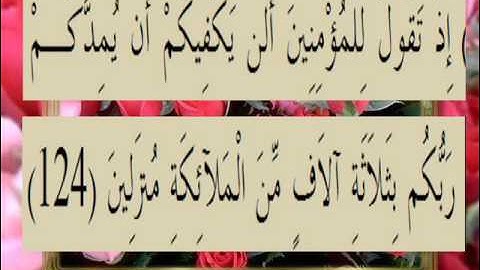 إِذْ تَقُولُ لِلْمُؤْمِنِينَ أَلَن يَكْفِيكُمْ أَن يُمِدَّكُمْ
رَبُّكُم بِثَلاَثَةِ آلاَفٍ مِّنَ الْمَلآئِكَةِ مُنزَلِينَ (124)